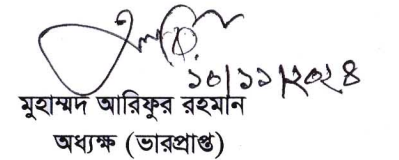 ১০/১১/২০২৪
মুহাম্মদ আরিফুর রহমান
অধ্যক্ষ (ভারপ্রাপ্ত)